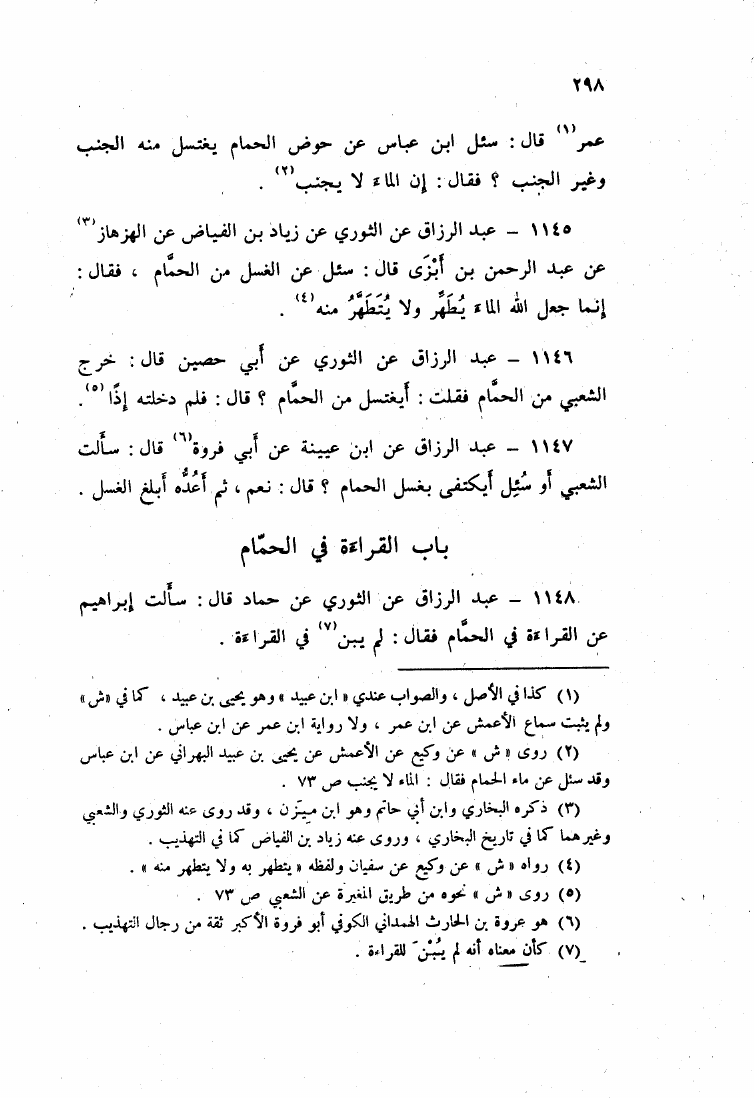 ٢٩٨
عمر(١) قال : سئل ابن عباس عن حوض الحمام يغتسل منه الجنب
وغير الجنب ؟ فقال : إن الماء لا يجنب(٢) .
١١٤٥ – عبد الرزاق عن الثوري عن زياد بن الفياض عن الهزهاز(٣)
عن عبد الرحمن بن أَبْزَى قال : سئل عن الغسل من الحمَّام ، فقال :
إنما جعل الله الماء يُطَهِّر ولا يُتَطَهَّرُ منه(٤) .
١١٤٦ – عبد الرزاق عن الثوري عن أَبي حصين قال : خرج
الشعبي من الحمَّام فقلت : أَيغتسل من الحمَّام ؟ قال : فلم دخلته إذًا(٥) .
١١٤٧ – عبد الرزاق عن ابن عيينة عن أَبي فروة(٦) قال : سأَلت
الشعبي أَو سُئِل أَيكتفى بغسل الحمام ؟ قال : نعم ، ثم أَعُدُّه أَبلغ الغسل .
باب القراءة في الحمّام
١١٤٨ – عبد الرزاق عن الثوري عن حماد قال : سأَلت إبراهيم
عن القراءة في الحمَّام فقال : لم يبن(٧) في القراءة .
(١) كذا في الأصل ، والصواب عندي « ابن عبيد » وهو يحيى بن عبيد ، كما في «ش»
ولم يثبت سماع الأعمش عن ابن عمر ، ولا رواية ابن عمر عن ابن عباس .
(٢) روى « ش » عن وكيع عن الأعمش عن يحيى بن عبيد البهراني عن ابن عباس
وقد سئل عن ماء الحمام فقال : الماء لا يجنب ص ٧٣ .
(٣) ذكره البخاري وابن أبي حاتم وهو ابن ميزن ، وقد روى عنه الثوري والشعبي
وغيرهما كما في تاريخ البخاري ، وروى عنه زياد بن الفياض كما في التهذيب .
(٤) رواه « ش » عن وكيع عن سفيان ولفظه « يتطهر به ولا يتطهر منه » .
(٥) روى « ش » نحوه من طريق المغيرة عن الشعبي ص ٧٣ .
(٦) هو عروة بن الحارث الهمداني الكوفي أبو فروة الأكبر ثقة من رجال التهذيب .
(٧) كأن معناه أنه لم يُبْنَ للقراءة .